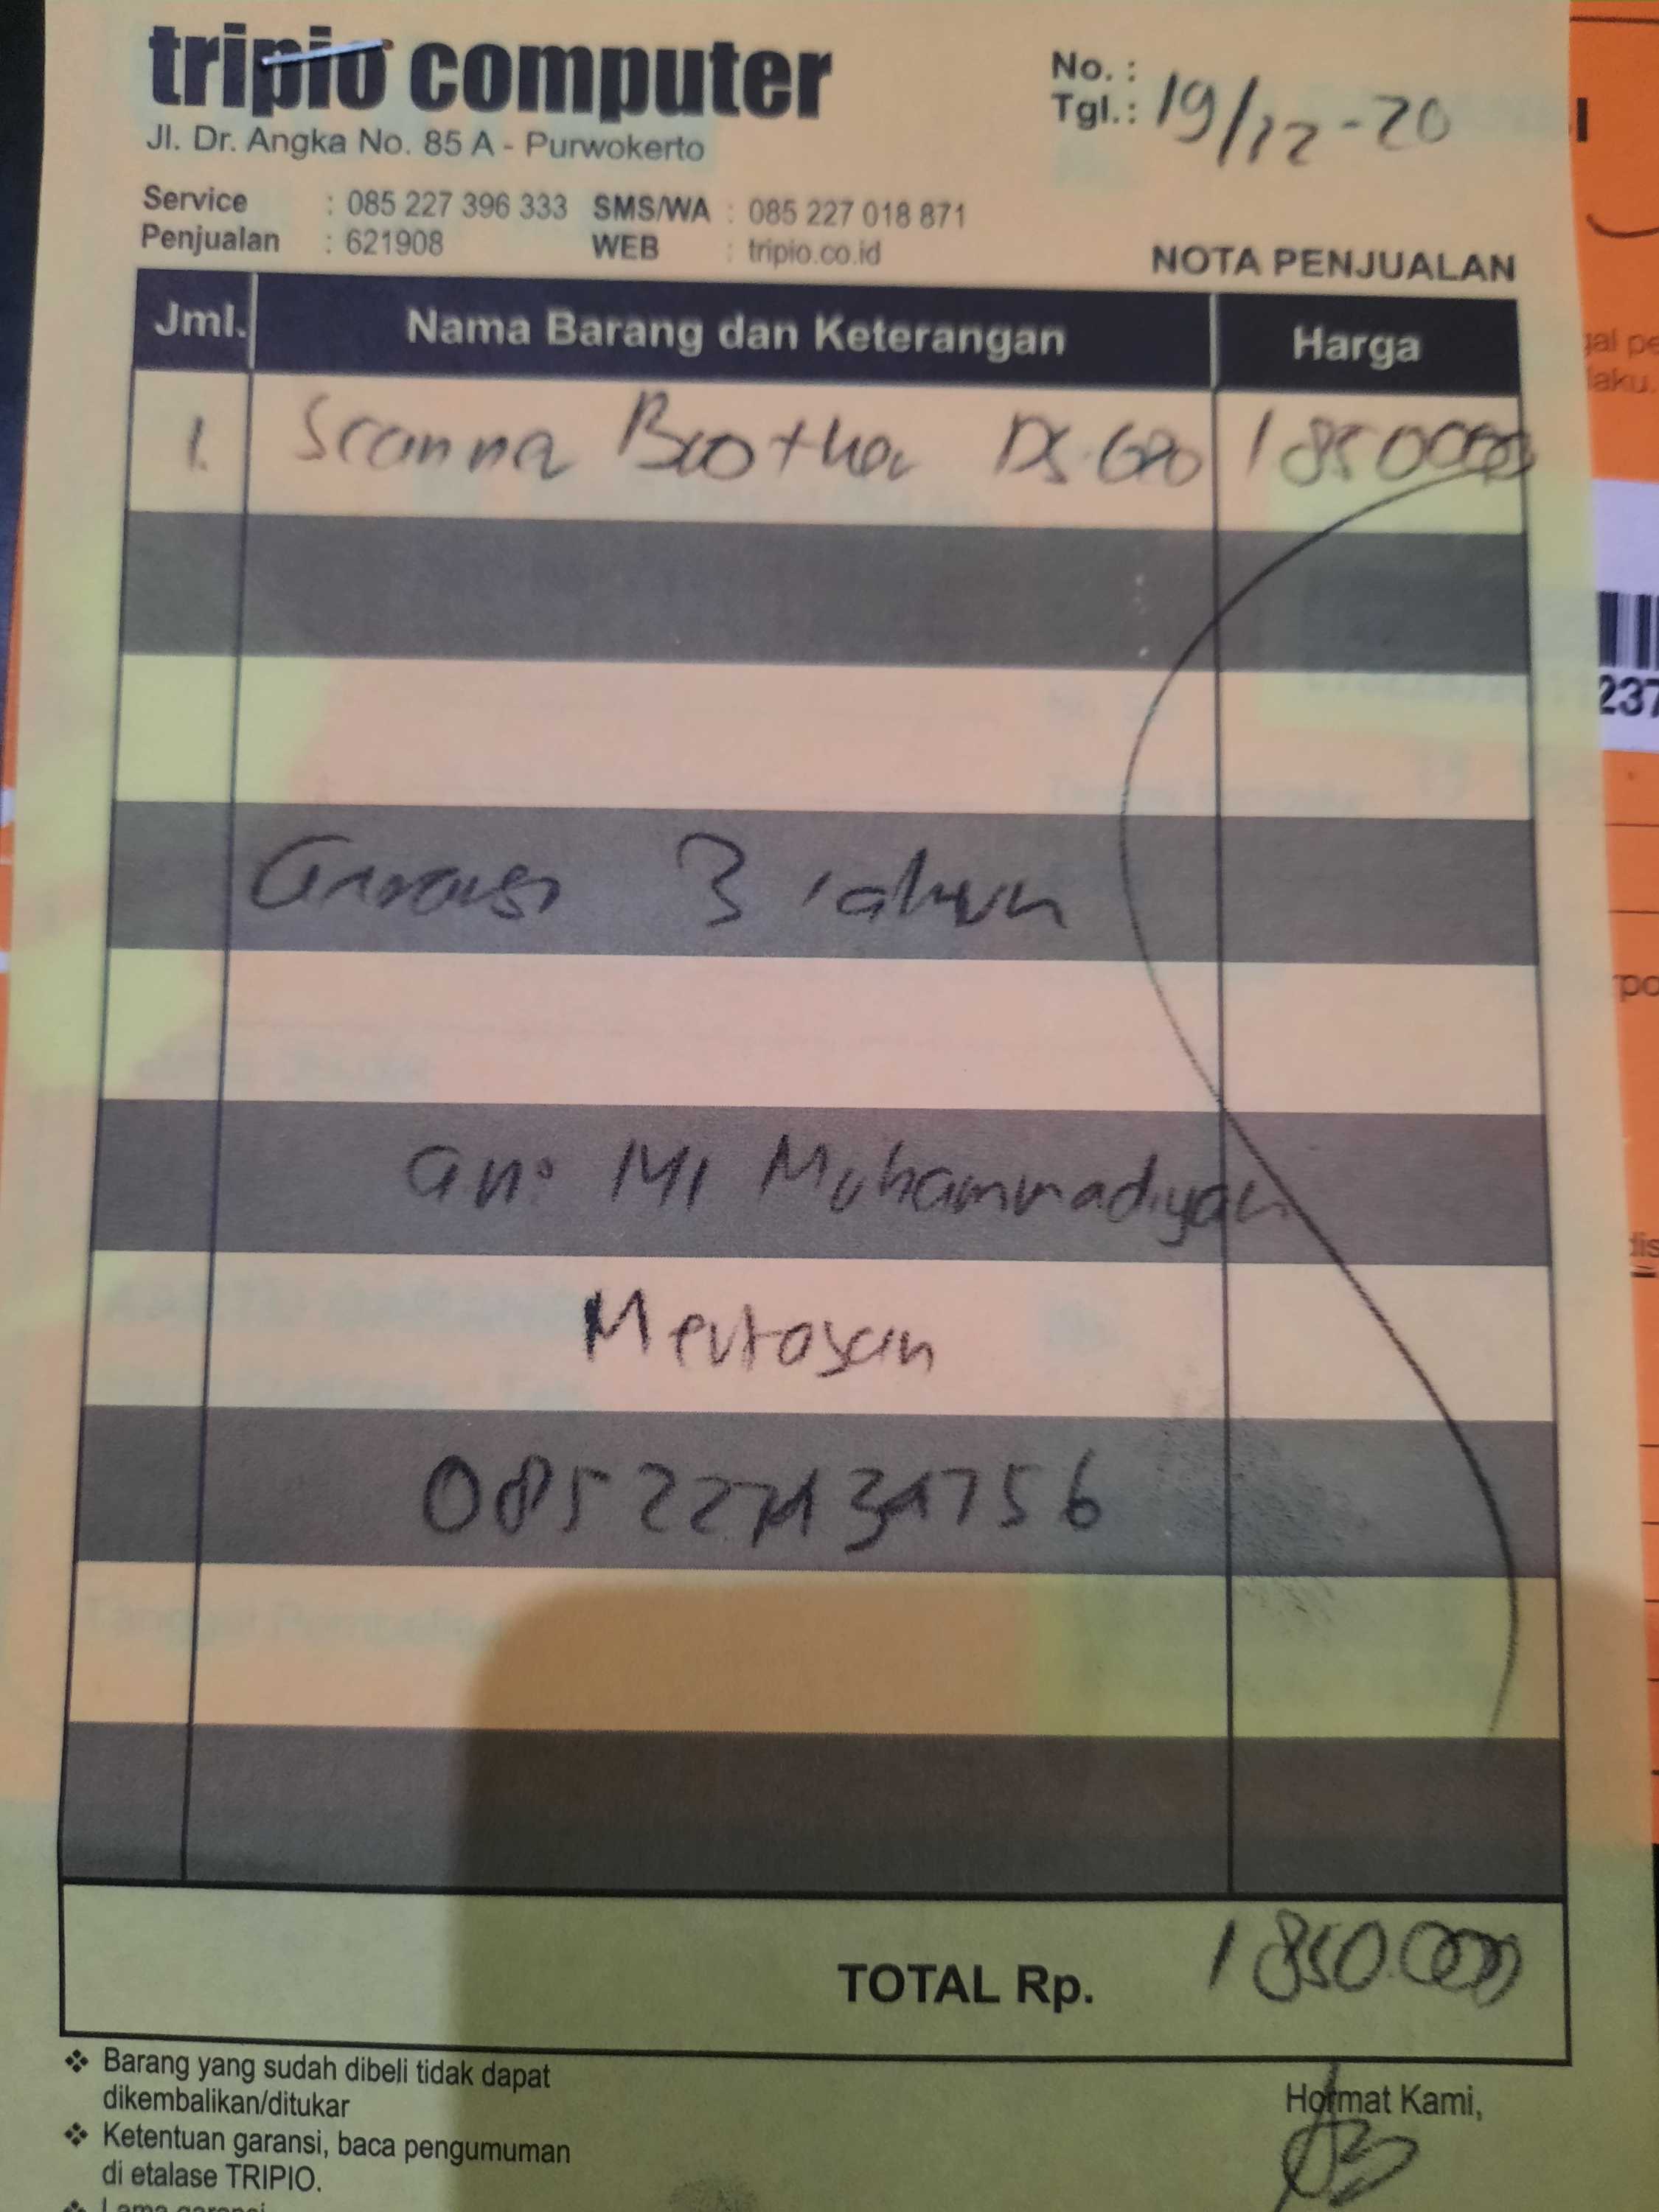 tripio computer
Jl. Dr. Angka No. 85 A - Purwokerto
No. :
Tgl.: 19/12-20
Service : 085 227 396 333 SMS/WA : 085 227 018 871
Penjualan : 621908 WEB : tripio.co.id
NOTA PENJUALAN
Jml. Nama Barang dan Keterangan Harga
1. Scanner Brother DS 620 1850000
Garansi 3 tahun
an: MI Muhammadiyah
TOTAL Rp. 1850.000
Barang yang sudah dibeli tidak dapat
dikembalikan/ditukar
Ketentuan garansi, baca pengumuman
di etalase TRIPIO.
Lama garansi
Hormat Kami,
237